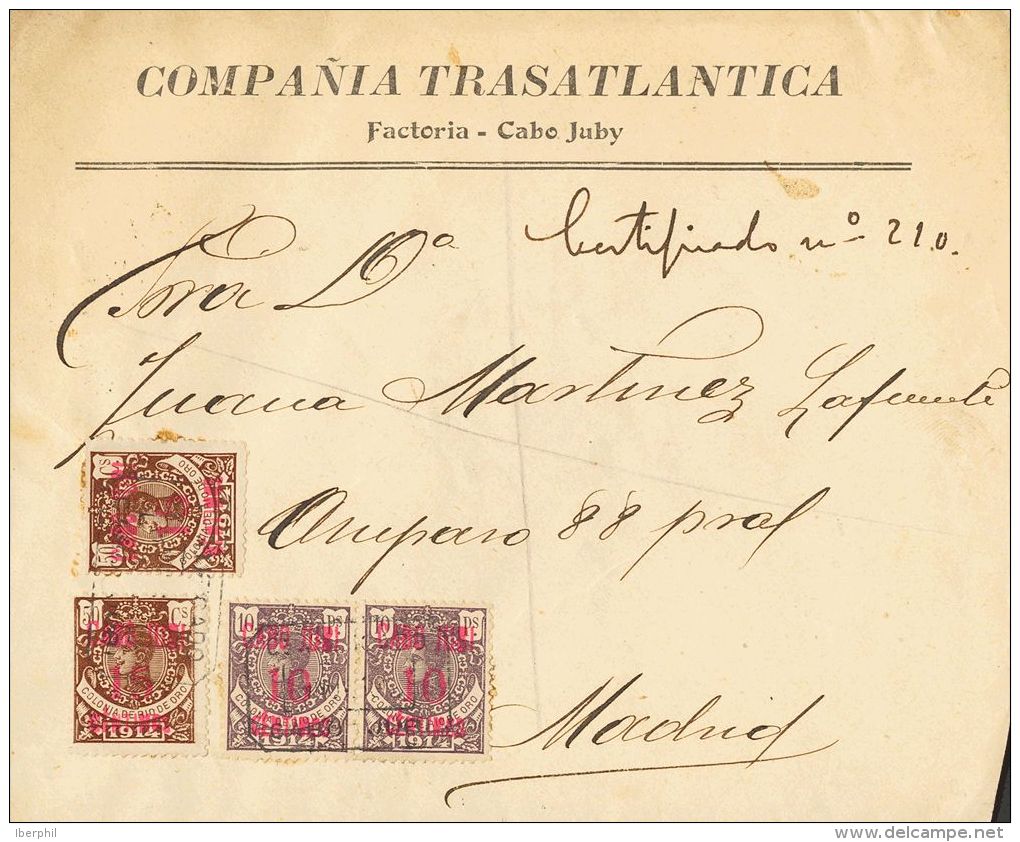 COMPAÑIA TRASATLANTICA
Factoria - Cabo Juby
Certificado nº 210.
Sra Dª
Juana Martinez Lafuente
Amparo 88 pral
Madrid
50 Cs
COLONIA DE RIO DE ORO
1914
50 Cs
CABO JUBI
COLONIA DE RIO DE ORO
CENTIMOS
1914
10 Ps
CABO JUBI
10
CENTIMOS
1914
10 Ps
CABO JUBI
10
COLONIA DE RIO DE ORO
CENTIMOS
1914
Iberphil
www.delcampe.net